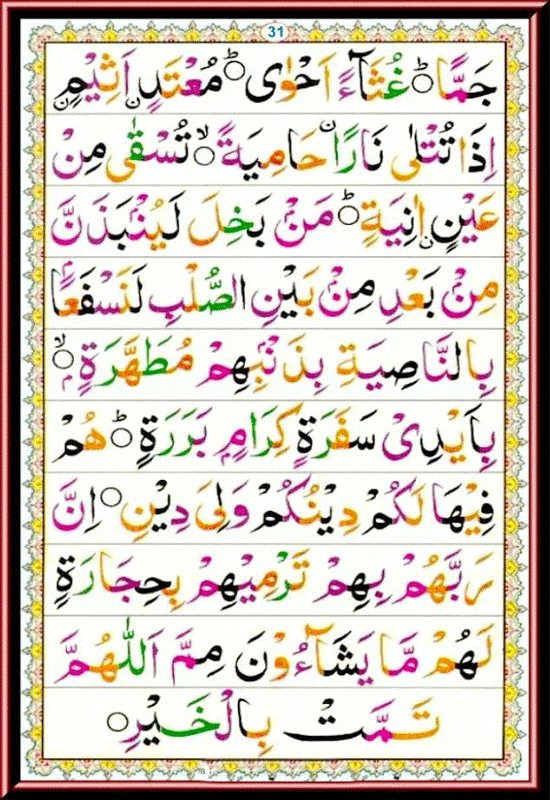 31
جَمًّاؕ○ غُثَآءً اَحْوٰىؕ○ مُعْتَدٍ اَثِيْمٍۙ
اِذَا تُتْلٰى نَارًا حَامِيَةًۙ○ تُسْقٰى مِنْ
عَيْنٍ اٰنِيَةٍؕ○ مَنْۢ بَخِلَ لَيُنْۢبَذَنَّ
مِنْۢ بَعْدِ مِنْۢ بَيْنِ الصُّلْبِ لَنَسْفَعًۢا
بِالنَّاصِيَةِ بِذَنْۢبِهِمْ مُطَهَّرَةٍۭۙ○
بِاَيْدِىْ سَفَرَةٍ كِرَامٍۭ بَرَرَةٍؕ○ هُمْ
فِيْهَا لَكُمْ دِيْنُكُمْ وَلِىَ دِيْنِ○ اِنَّ
رَبَّهُمْ بِهِمْ تَرْمِيْهِمْ بِحِجَارَةٍ
لَهُمْ مَّا يَشَآءُوْنَ مِمَّ اَللّٰهُمَّ
تَمَّتْ بِالْخَيْرِ○